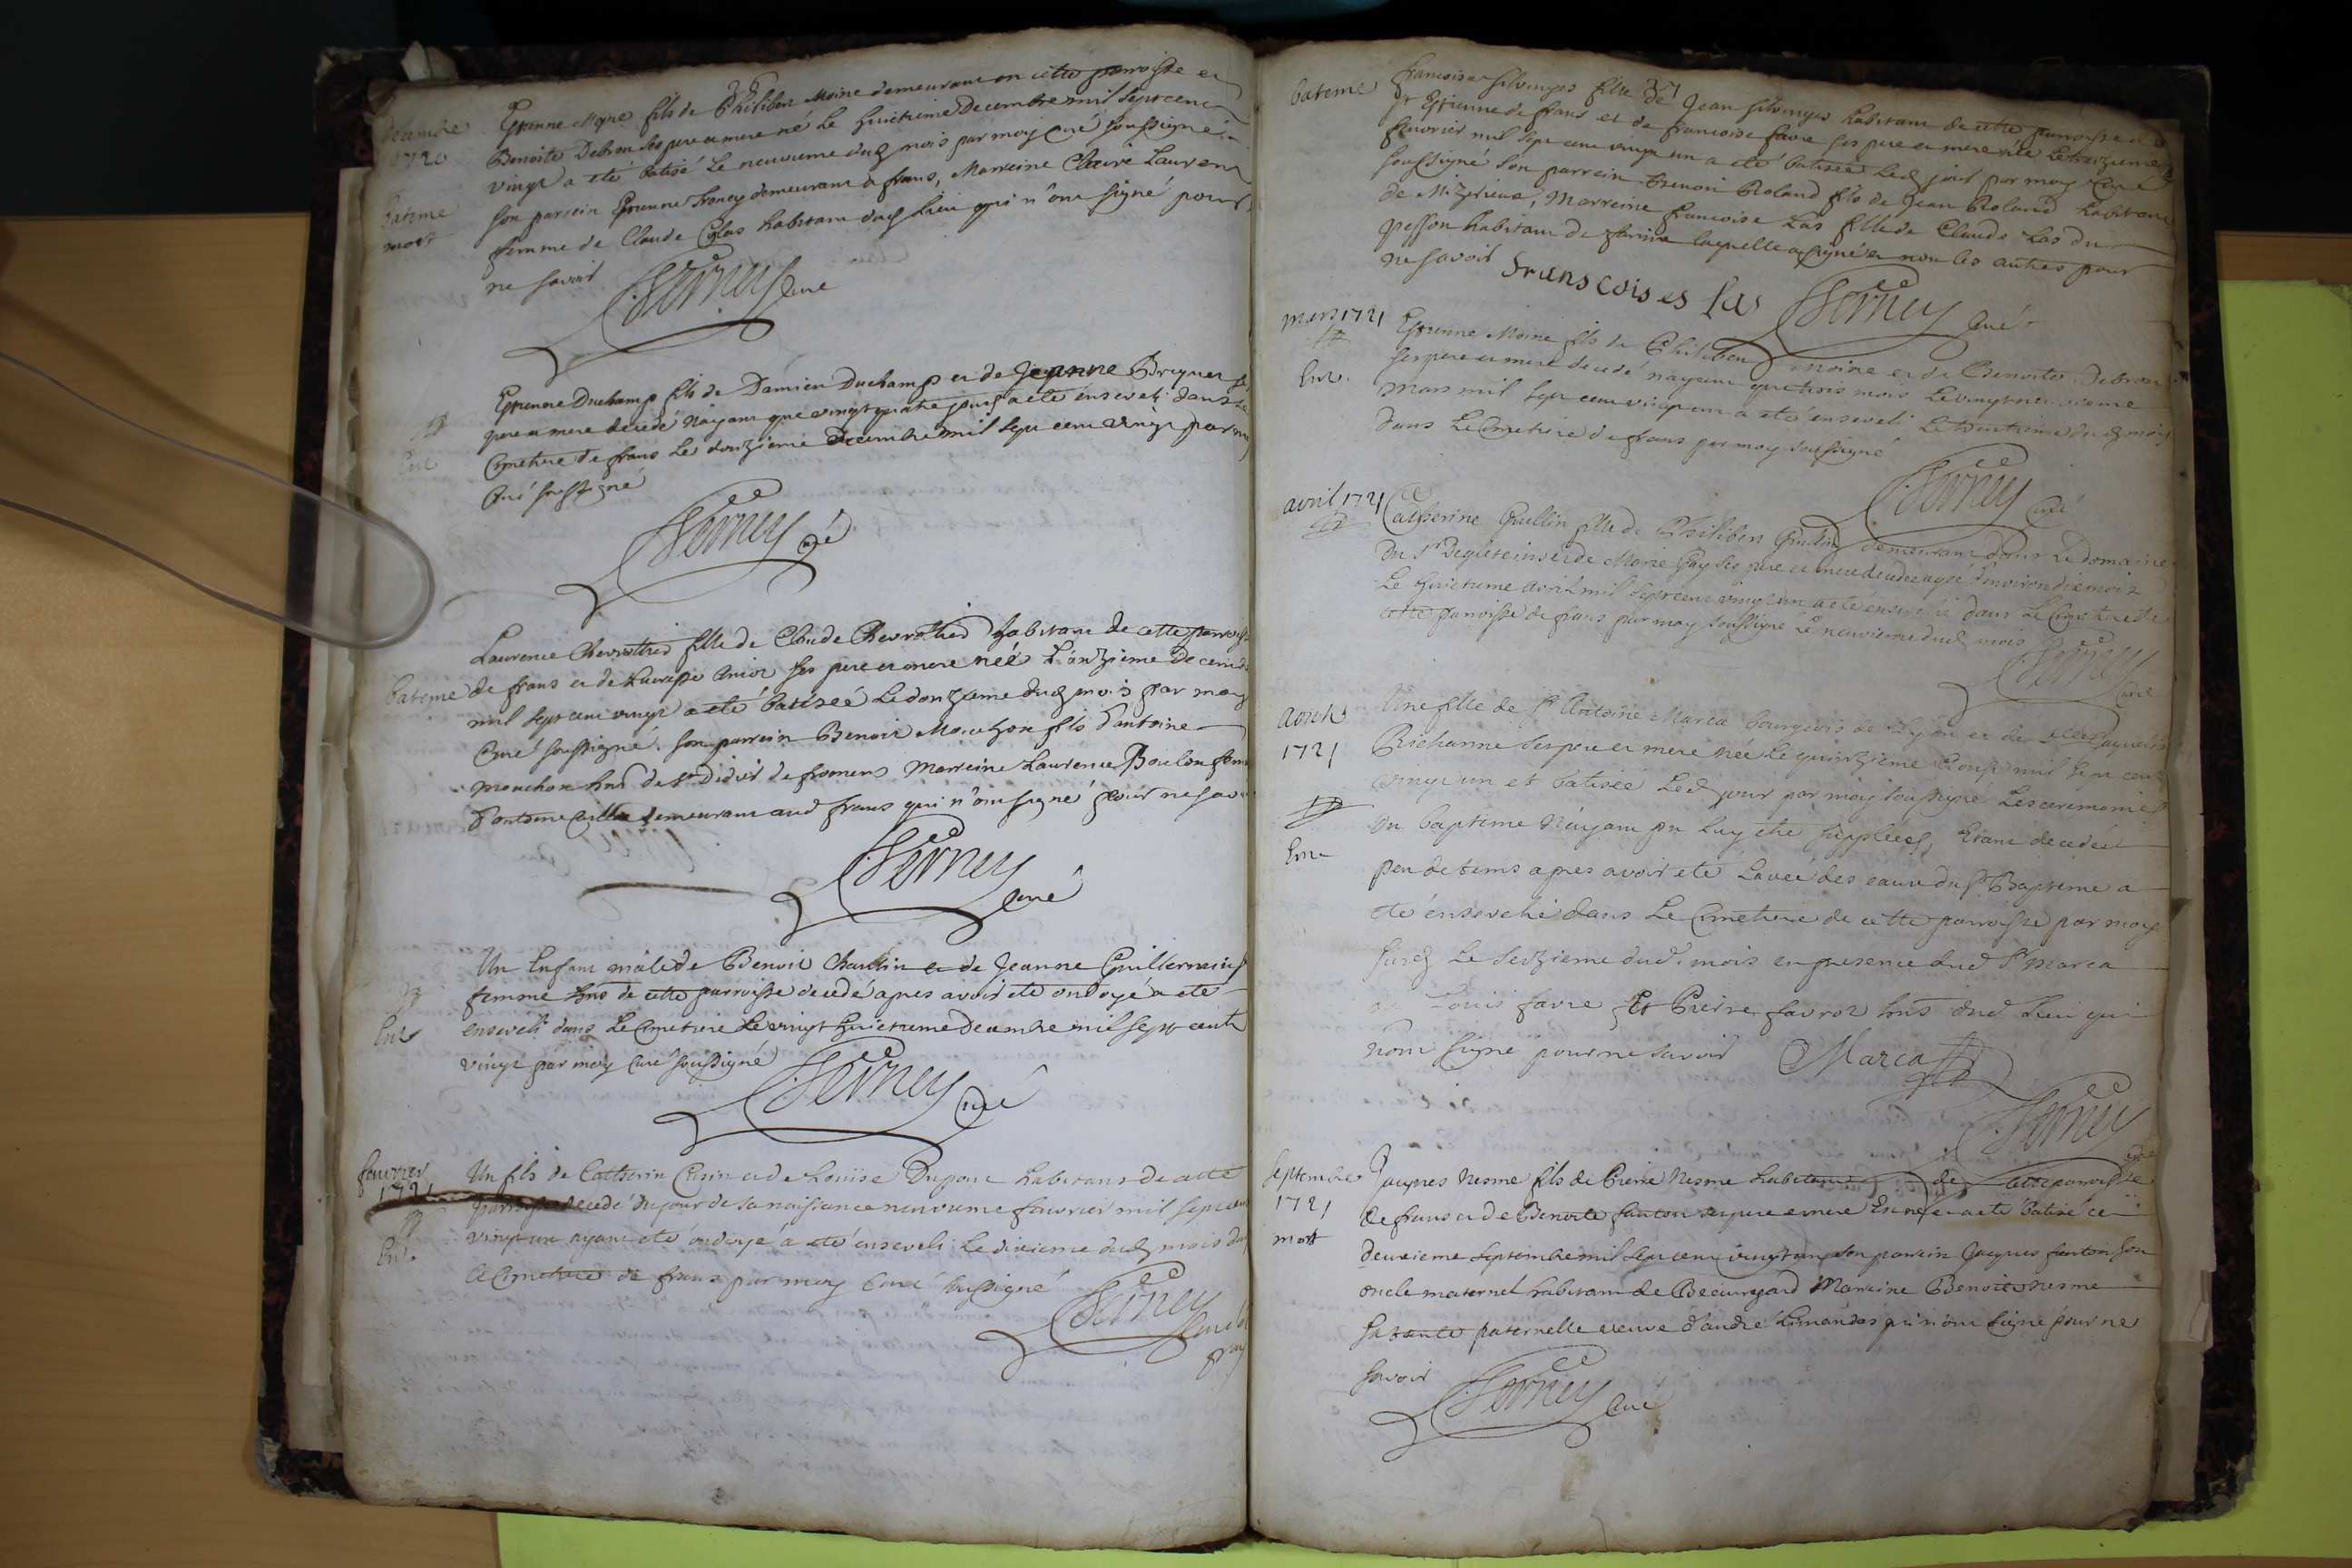 36
decembre
1720
bateme
mort
Etienne Moine fils de Philibert Moine demeurant en cette parroisse et
Benoite Debron ses pere et mere né le huictieme Decembre mil sept cent
vingt a eté batisé le neuvieme dud mois par moy curé soussigné
son parrein Etienne demeurant a frans, Marreine Claire Laurent
femme de Claude habitant dud lieu qui n'ont signé pour
ne savoir
Verney curé
Ent
Etienne Duchamp fils de Damien Duchamp et de Jeanne Breynet ses
pere et mere decedé n'ayant que vingt quatre jours a eté enseveli dans le
Cimetiere de frans le douzieme Decembre mil sept cent vingt par moy
Curé soussigné
Verney curé
bateme
Laurence Chevrottier fille de Claude Chevrottier habitant de cette parroisse
de frans et de ses pere et mere née l'onzieme decembre
mil sept cent vingt a eté batiseé le douzieme dud mois par moy
Curé soussigné. son parrein Benoit Mouchon fils d'antoine
mouchon hnt de st Didier de fromens Marreine Laurence Boulon femme
d'antoine demeurant aud frans qui n'ont signé pour ne savoir
Verney
curé
Ent
Un Enfant mâle de Benoit Chanttin et de Jeanne Guillermin sa
femme hns de cette parroisse decedé apres avoir eté ondoyé a eté
enseveli dans le Cimetiere le vingt huictieme decembre mil sept cent
vingt par moy curé soussigné
Verney curé
fauvrier
1721
Ent.
Un fils de Catherin Cusin et de Louïse Dupont habitans de cette
parroisse decedé du jour de sa naissance neuvieme fauvrier mil sept cent
vingt un ayant eté ondoyé a eté enseveli le dixieme dud mois dans
le Cimetiere de frans par moy Curé soussigné
Verney
curé
37
bateme
francoise Silvinges fille de Jean Silvinges habitant de cette parroisse de
st Etienne de frans et de francoise favre ses pere et mere née le treizieme
feuvrier mil sept cent vingt un a eté batisée led jour par moy Curé
soussigné son parrein benoit Roland fils de Jean Roland habitant
de Mizerieux, Marreine francoise Las fille de Claude Las du
pesson habitant de farins laquelle a signé et non les autres pour
ne savoir
franscoises las
Verney curé
mars 1721
Ent.
Etienne Moine fils de Philibert Moine et de Benoite Debron
ses pere et mere decedé n'ayant que trois mois le vingt neuvieme
Mars mil sept cent vingt un a eté enseveli le trentieme dud mois
dans le Cimetiere de frans par moy soussigné
Verney curé
avril 1721
Catherine Guillin fille de Philibert Guillin demeurant dans le domaine
du sr Degleteins et de Marie Gay ses pere et mere decedee agee d'environ dix mois
le huictieme avril mil sept cent vingt un a eté ensevelie dans le Cimetiere de
cette parroisse de frans par moy soussigné le neuvieme dud mois
Verney
curé
Aoust
1721
Ent
Une fille de sr Antoine Marca bourgeois de Lyon et de
Richanne ses pere et mere née le quinzieme Aoust mil sept cent
vingt un et batisée led jour par moy soussigné les ceremonies
du baptéme n'ayant pu luy etre suppleées, etant decedée
peu de tems apres avoir eté lavée des eaux du st Baptéme a
eté ensevelie dans le Cimetiere de cette parroisse par moy
susd le seizieme dud. mois en presence dud sr Marca
de Louis favre et Pierre favrot hns dud lieu qui
n'ont signé pour ne savoir
Marca
Verney
curé
septembre
1721
mort
Jaques Nesme fils de Pierre Nesme habitant de cette parroisse
de frans et de Benoite fanton ses pere et mere est né et a eté batisé ce
deuxieme septembre mil sept cent vingt un son parrein Jaques fanton son
oncle maternel habitant de Beauregard Marreine Benoite nesme
sa tante paternelle veuve d'andré Limandas qui n'ont signé pour ne
savoir
Verney curé